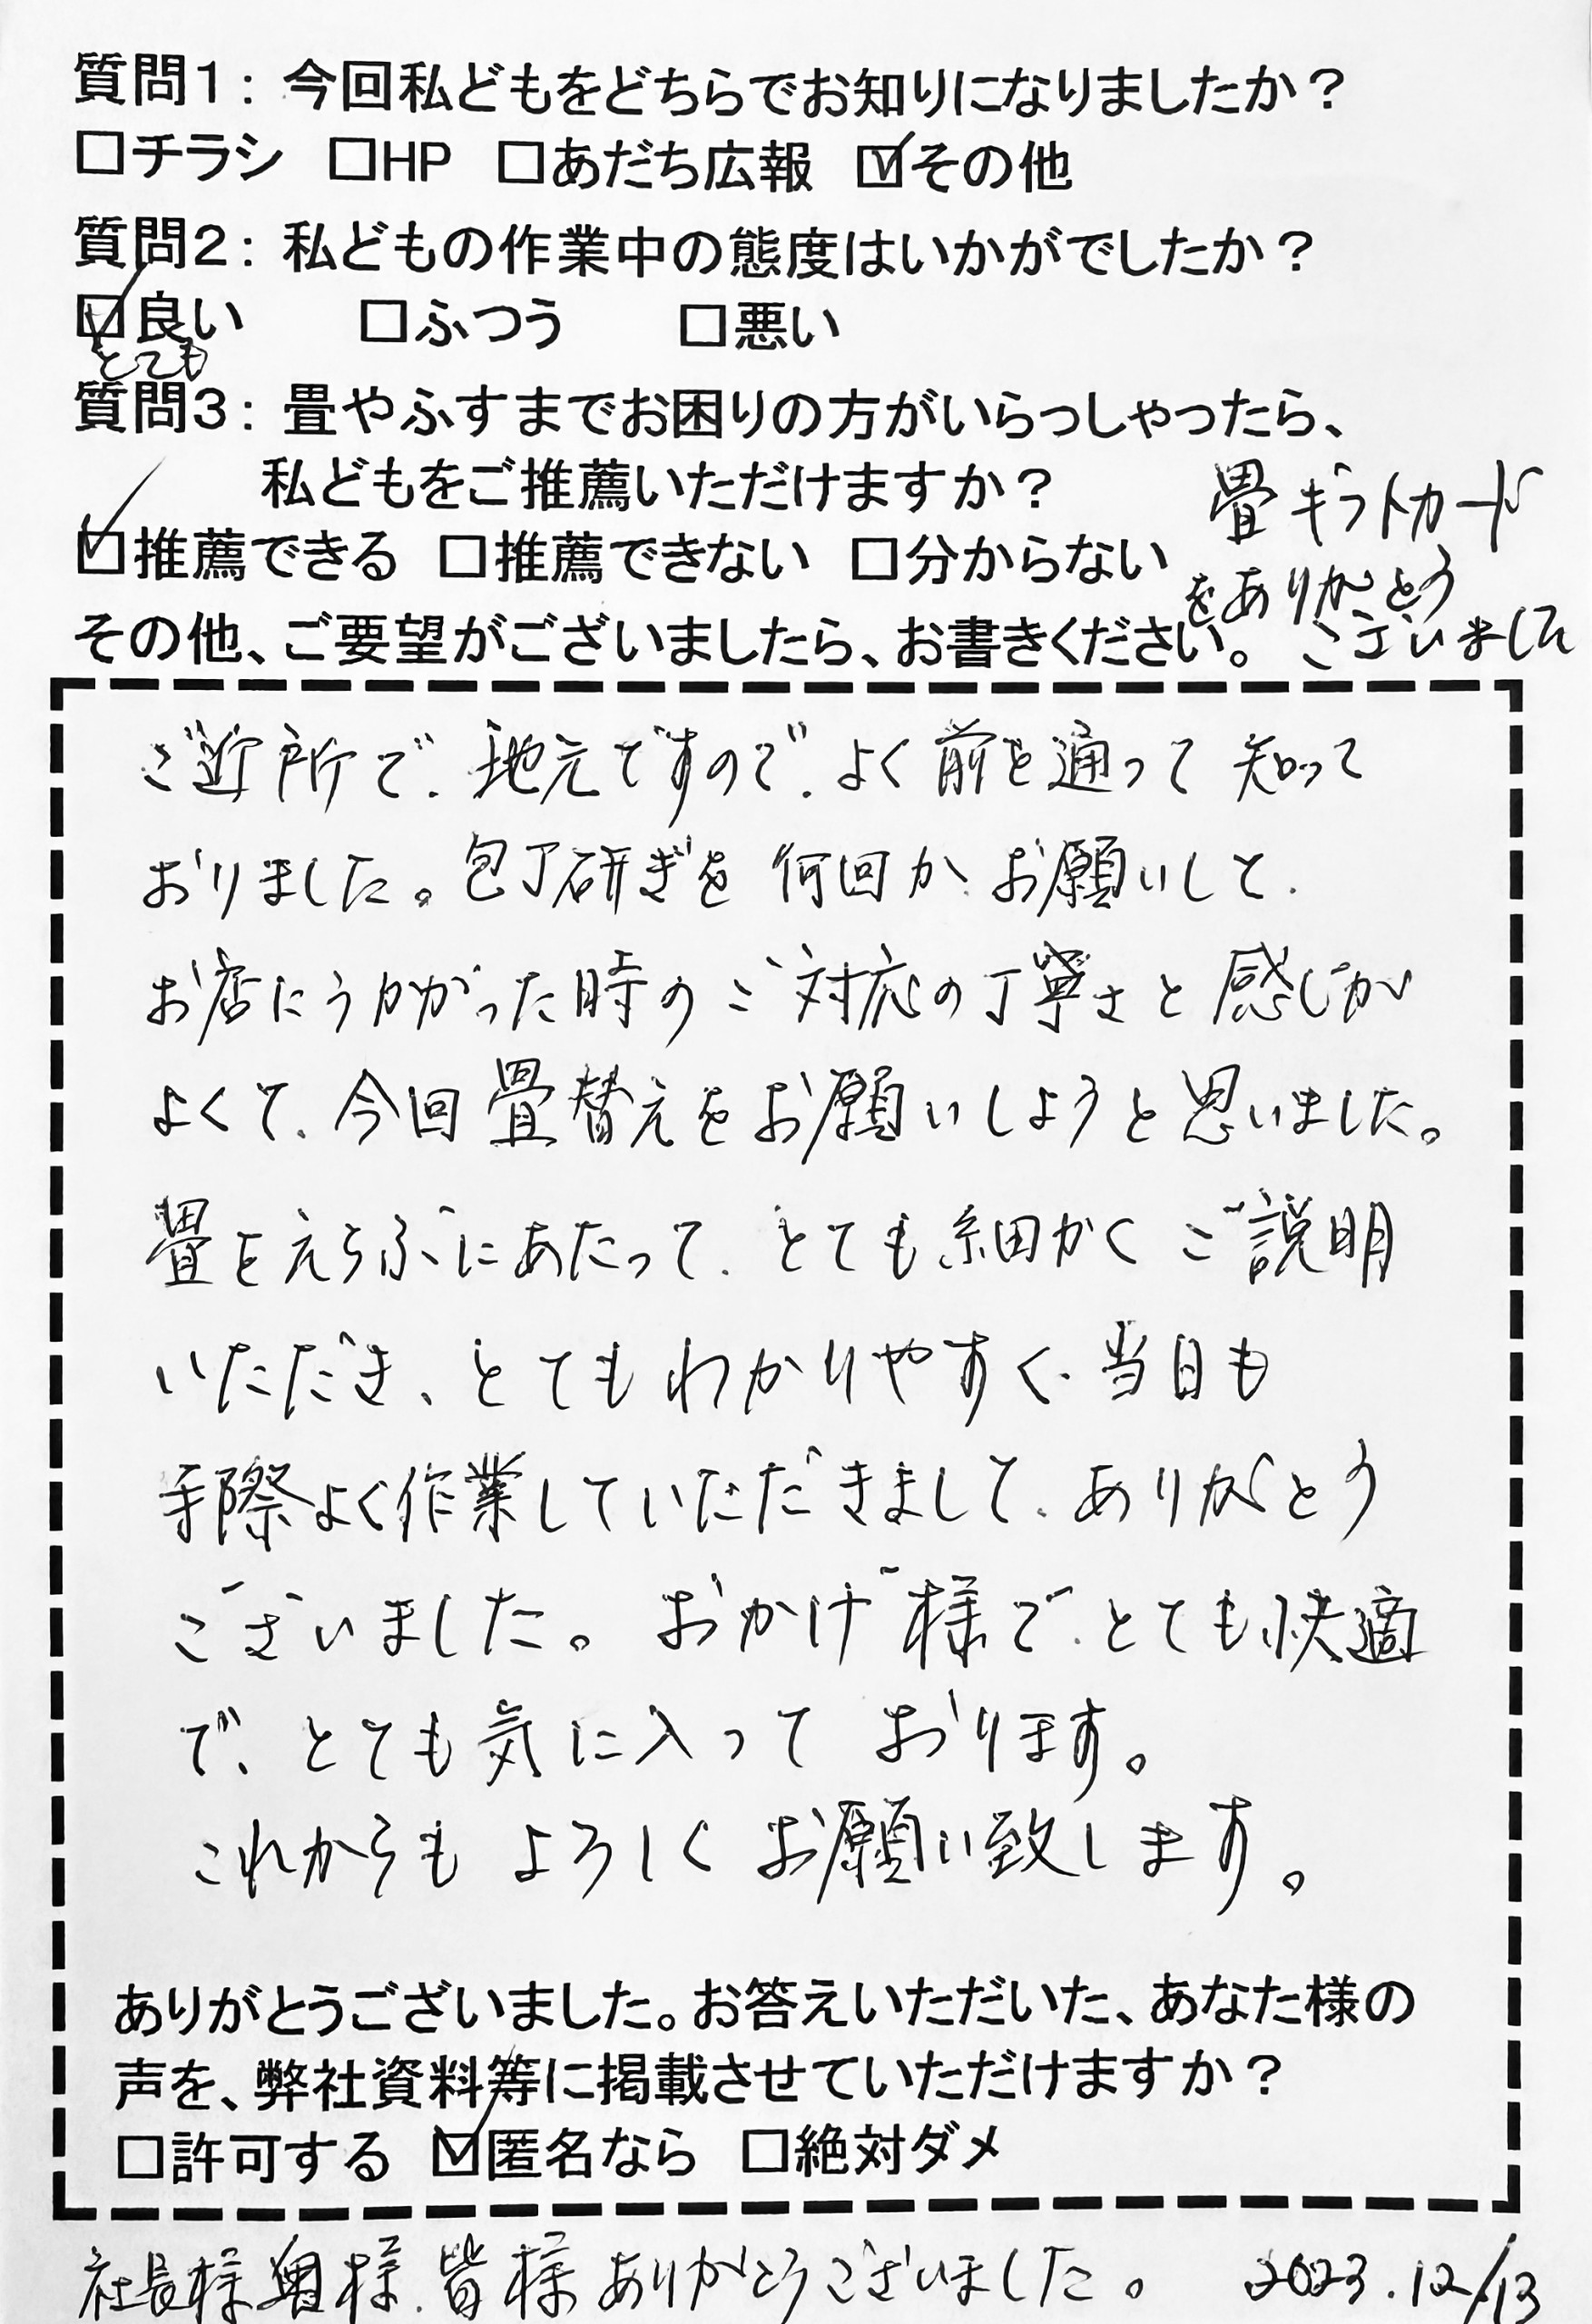 質問1：今回私どもをどちらでお知りになりましたか？
□チラシ □HP □あだち広報 ☑その他
質問2：私どもの作業中の態度はいかがでしたか？
☑良い □ふつう □悪い
とても
質問3：畳やふすまでお困りの方がいらっしゃったら、
私どもをご推薦いただけますか？
☑推薦できる □推薦できない □分からない
畳ギフトカード
をありがとう
ございました
その他、ご要望がございましたら、お書きください。
ご近所で、地元ですので、よく前を通って知って
おりました。包丁研ぎを何回かお願いして、
お店にうかがった時のご対応の丁寧さと感じが
よくて、今回畳替えをお願いしようと思いました。
畳をえらぶにあたって、とても細かくご説明
いただき、とてもわかりやすく、当日も
手際よく作業していただきまして、ありがとう
ございました。おかげ様で、とても快適
で、とても気に入っております。
これからもよろしくお願い致します。
ありがとうございました。お答えいただいた、あなた様の
声を、弊社資料等に掲載させていただけますか？
□許可する ☑匿名なら □絶対ダメ
社長様奥様、皆様ありがとうございました。 2023.12/13